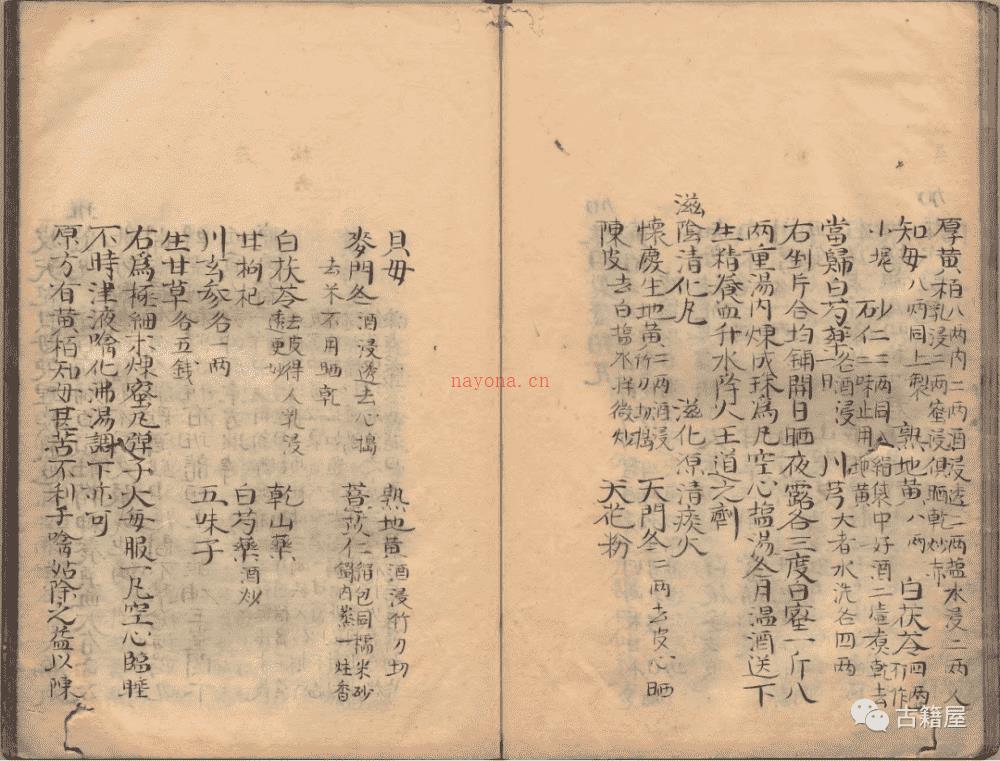 厚黄柏八兩內二兩酒浸透二兩塩水浸二兩人
乳浸二兩蜜浸俱晒乾炒赤
知母八兩同上製 熟地黄八兩 白茯苓四兩
砂仁二兩同入絹集中好酒二壺煮乾去
二味止用地黄
當歸白芍藥各酒浸 川芎大者水洗各四兩
右剉片合均鋪開日晒夜露各三度白蜜一斤八
兩重湯內煉成珠為丸空心塩湯冬月温酒送下
生精養血升水降火王道之劑
滋陰清化丸 滋化源清痰火
懷慶生地黄二兩酒浸竹刀切搗 天門冬二兩去皮心晒
陳皮去白塩水拌微炒 天花粉
貝母 熟地黄酒浸竹刀切
麥門冬酒浸透去心搗
去米不用晒乾
白茯苓去皮得人乳浸 乾山藥
甘枸杞 白芍藥酒炒
川玄參各一兩 五味子
生甘草各五錢
右為極細末煉蜜丸彈子大每服一丸空心臨睡
不時津液噙化沸湯調下亦可
原方有黄栢知母甚苦不利于噙姑除之益以陳
nayona.cn
古籍屋